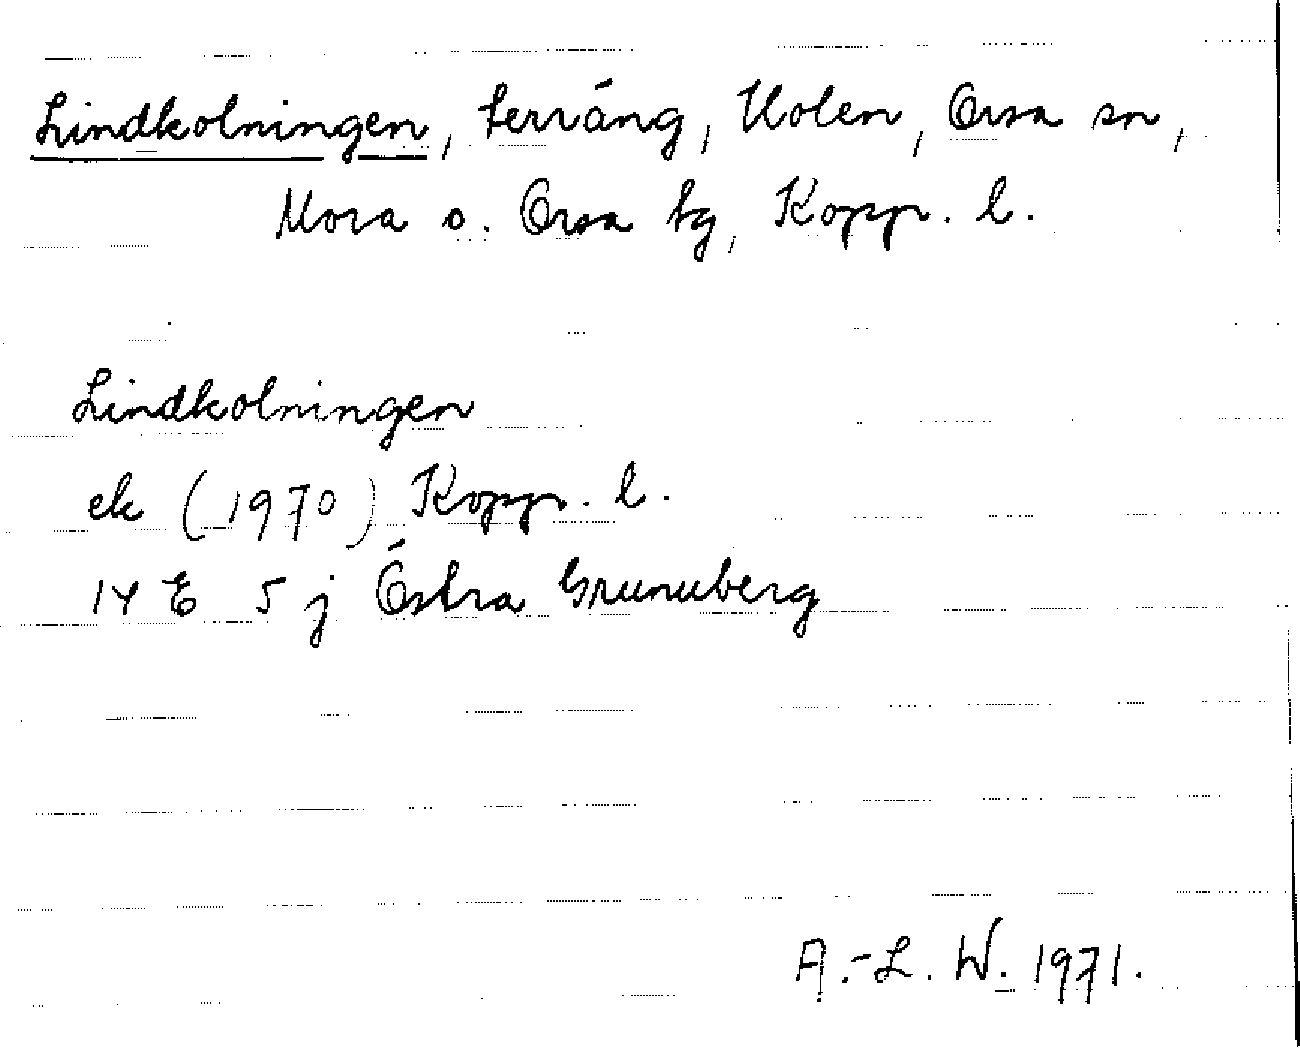 Lindkolningen, terräng, Holen, Orsa sn,
Mora o. Orsa tg, Kopp. l.
Lindkolningen
ek (1970) Kopp. l.
14 E 5 j Östra Grunuberg
A.-L. W. 1971.